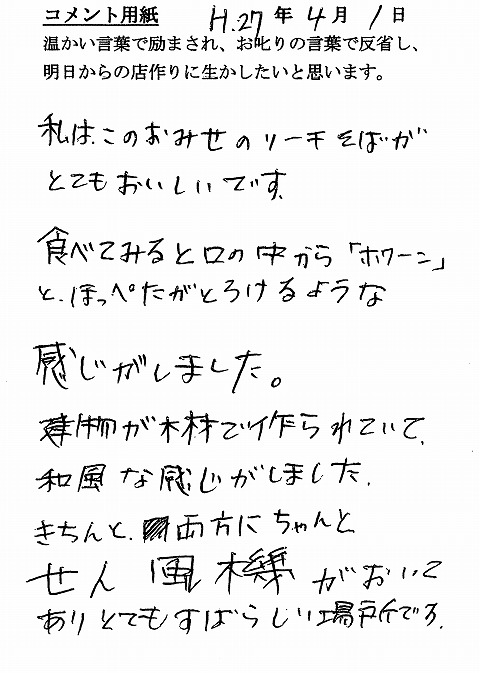 コメント用紙 H.27年4月1日
温かい言葉で励まされ、お叱りの言葉で反省し、
明日からの店作りに生かしたいと思います。
私は、このおみせのリーチそばが
とてもおいしいです。
食べてみると口の中から「ホワーン」
と、ほっぺたがとろけるような
感じがしました。
建物が木材で作られていて、
和風な感じがしました。
きちんと、両方にちゃんと
せん風機がおいて
ありとてもすばらしい場所でる。